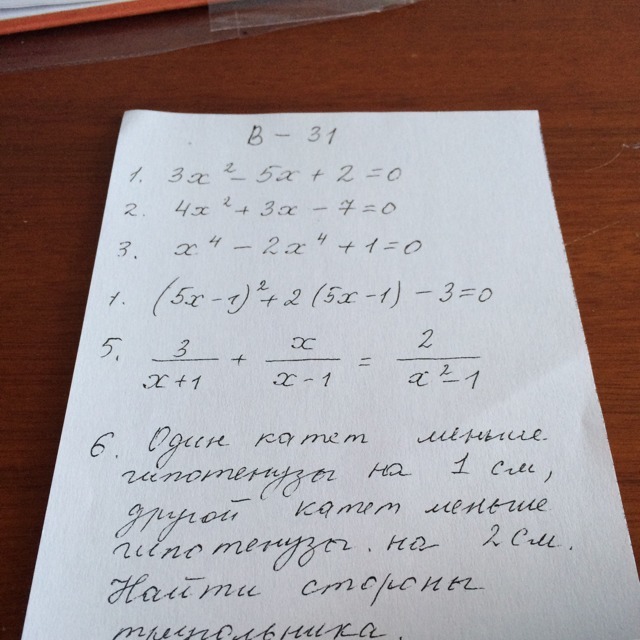 В - 31
1. 3x² - 5x + 2 = 0
2. 4x² + 3x - 7 = 0
3. x⁴ - 2x⁴ + 1 = 0
1. (5x-1)² + 2 (5x-1) - 3 = 0
5. 3/(x+1) + x/(x-1) = 2/(x²-1)
6. Один катет меньше
гипотенузы на 1 см,
другой катет меньше
гипотенузы на 2 см.
Найти стороны
треугольника.